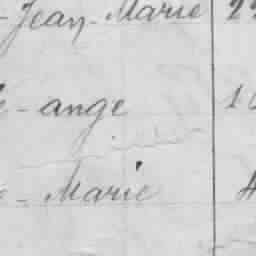 -Jean-Marie 2
- ange 1
- Marie 4